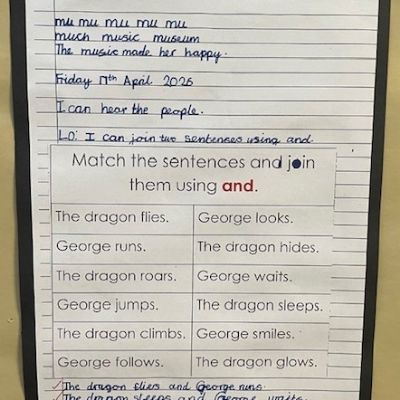 mu mu mu mu mu
much music museum
The music made her happy.
Friday 11th April 2025
I can hear the people.
LO: I can join two sentences using and.
Match the sentences and join
them using and.
The dragon flies. George looks.
George runs. The dragon hides.
The dragon roars. George waits.
George jumps. The dragon sleeps.
The dragon climbs. George smiles.
George follows. The dragon glows.
The dragon flies and George runs.
The dragon sleeps and George waits.